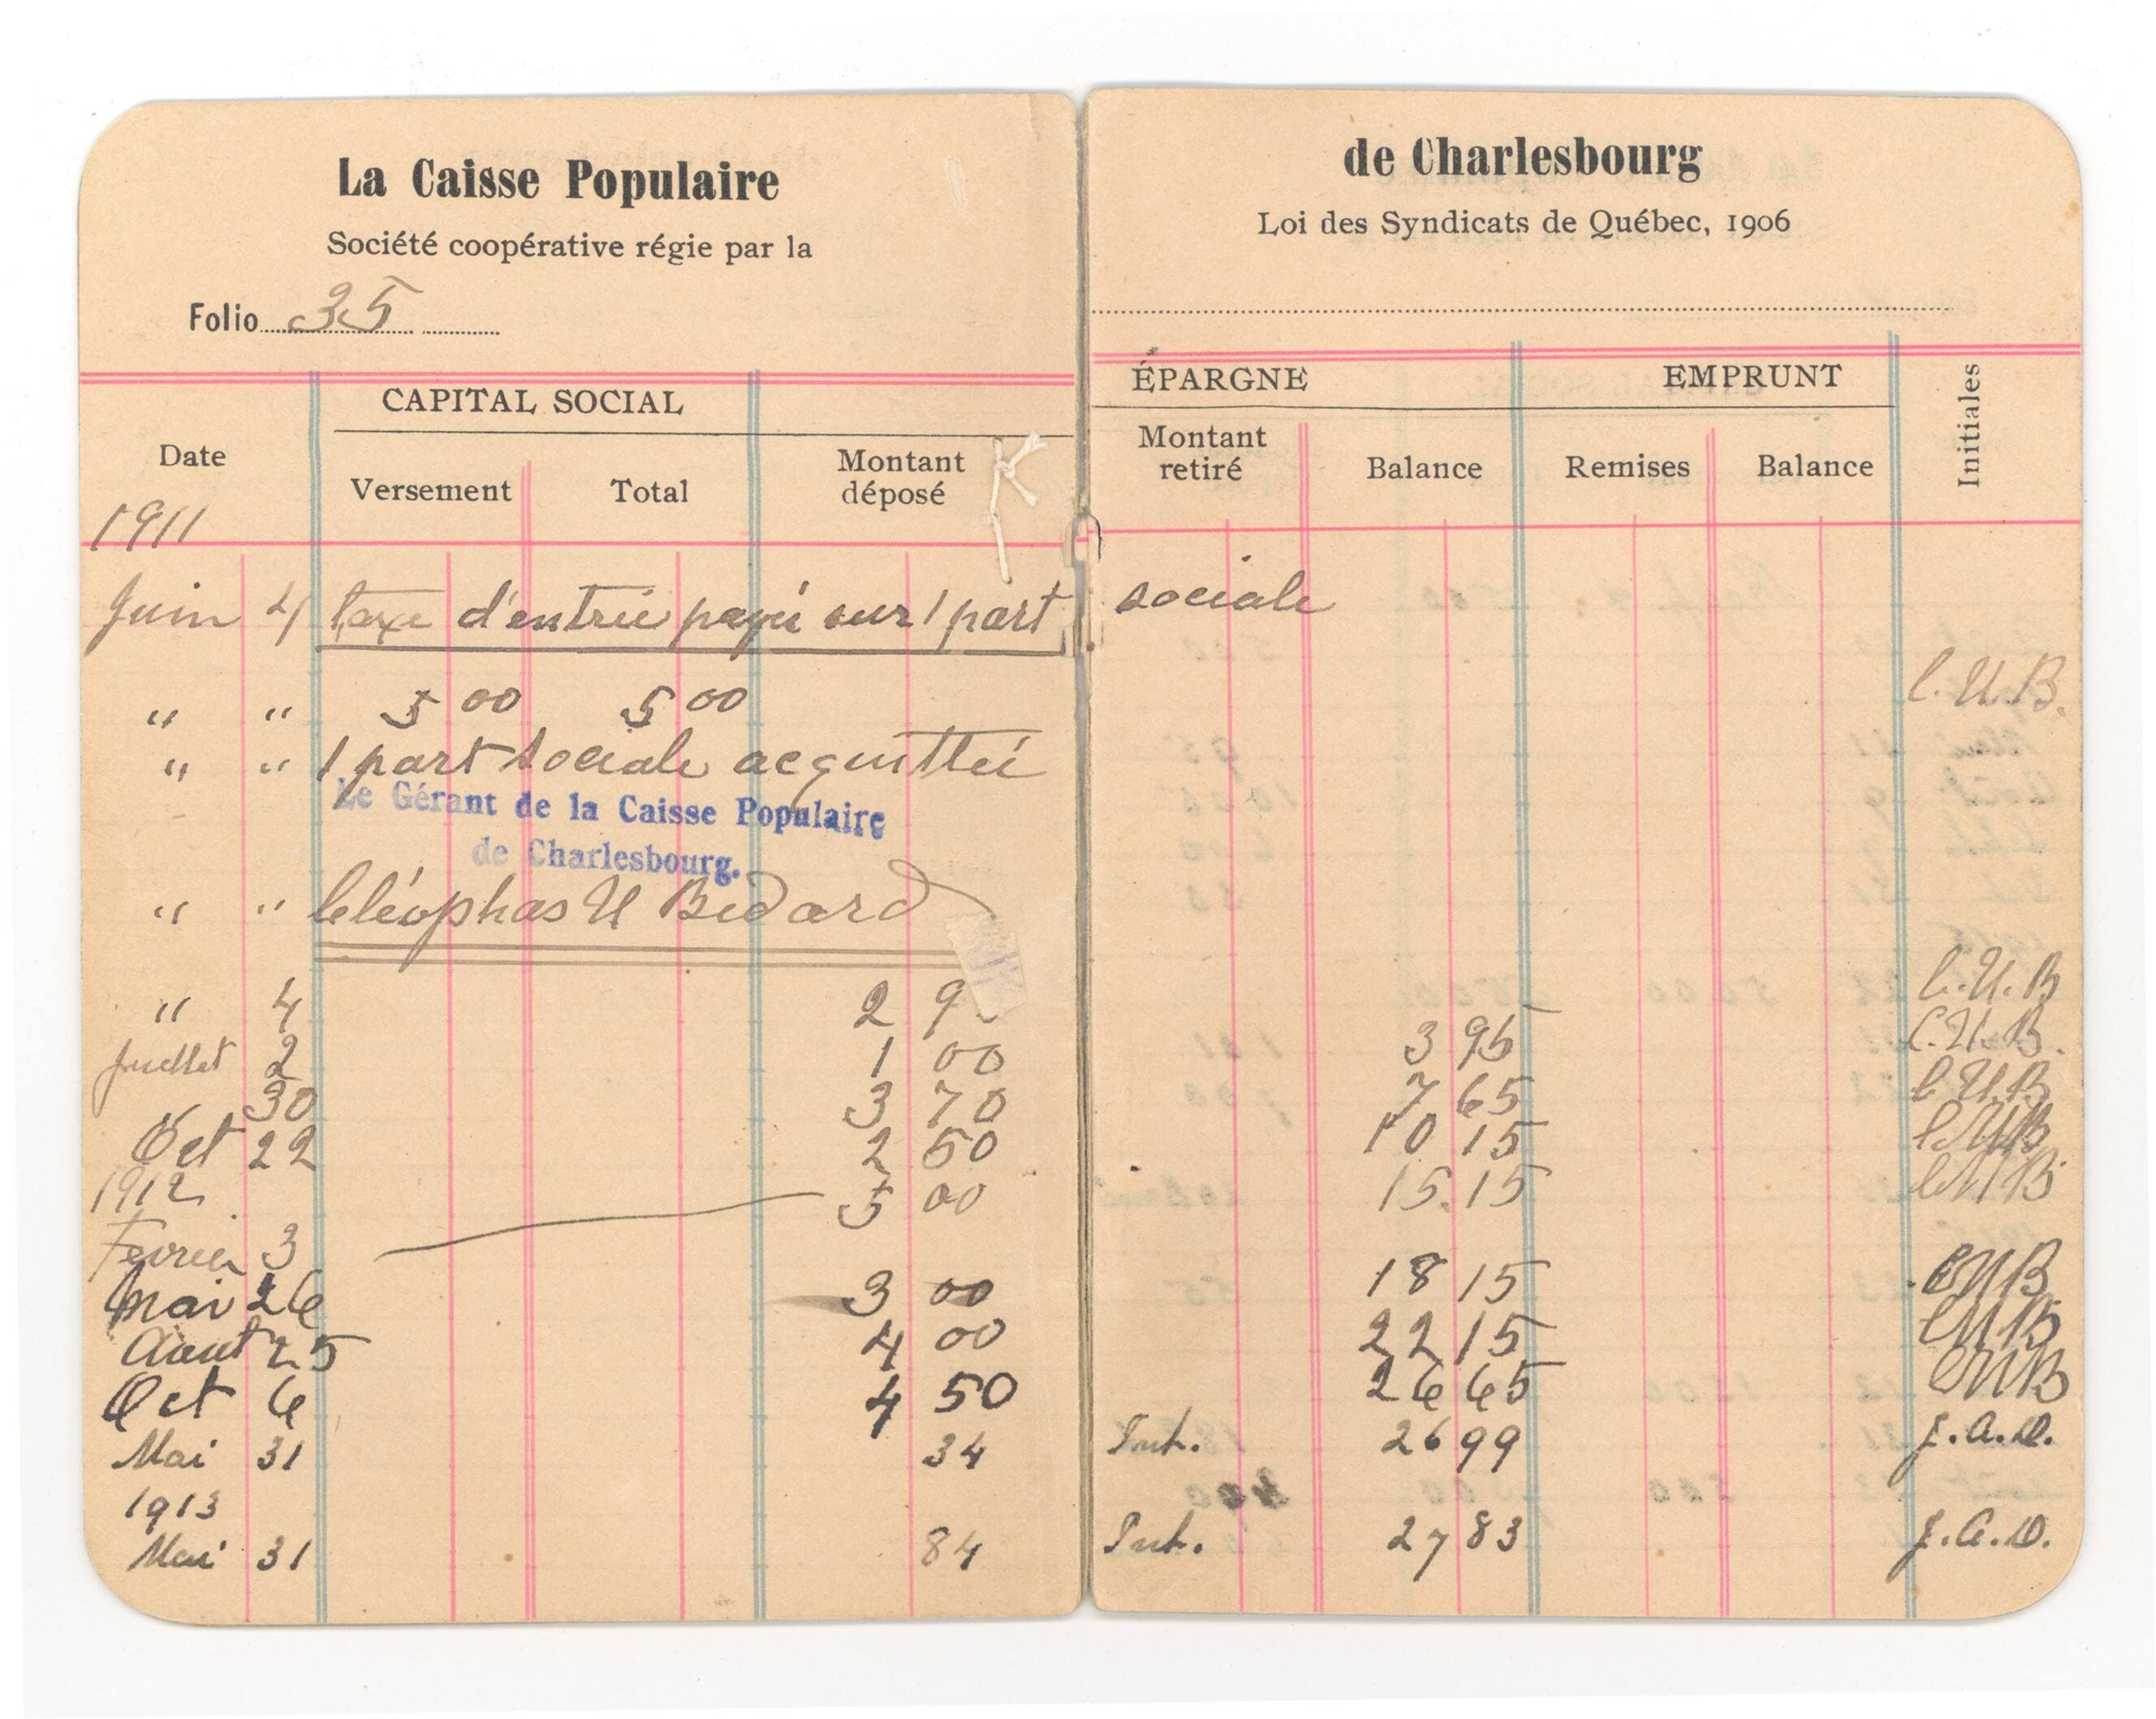 La Caisse Populaire
Société coopérative régie par la
Folio 35
de Charlesbourg
Loi des Syndicats de Québec, 1906
CAPITAL SOCIAL ÉPARGNE EMPRUNT
Date Versement Total Montant déposé Montant retiré Balance Remises Balance Initiales
1911
Juin 4 taxe d'entrée payée sur 1 part sociale
" " 5 00 5 00 C.U.B.
" " 1 part sociale acquittée
Le Gérant de la Caisse Populaire
de Charlesbourg.
" " Cléophas U Bédard
" 4 2 9 C.U.B
Juillet 2 1 00 3 95 C.U.B.
30 3 70 7 65 C.U.B
Oct 22 2 50 10 15 CUB
1912 5 00 15.15 CUB
Fevrier 3
Mai 26 3 00 18 15 CUB
Aout 25 4 00 22 15 CUB
Oct 6 4 50 26 65 CUB
Mai 31 34 Int. 26 99 J.A.D.
1913
Mai 31 84 Int. 27 83 J.A.D.